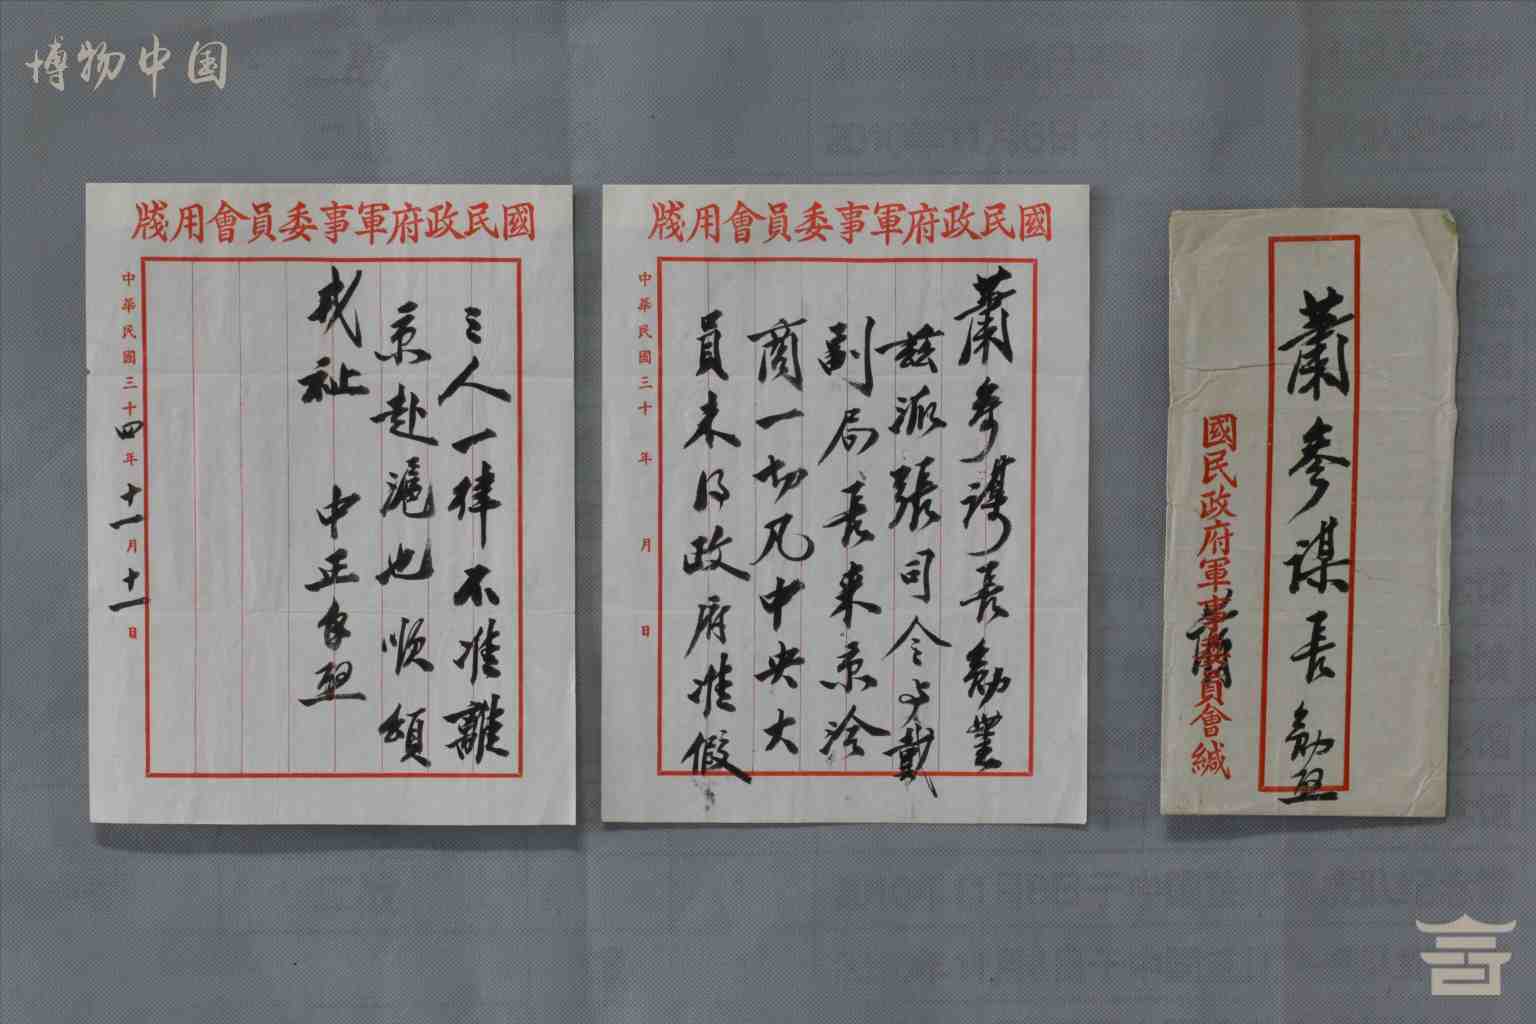 博物中国
蕭參謀長勛啓
國民政府軍事委員會緘
蔣
國民政府軍事委員會用牋
蕭參謀長勛鑒
茲派張司令與戴
副局長來京洽
商一切凡中央大
員未得政府准假
中華民國三十 年 月 日
國民政府軍事委員會用牋
三人一律不准離
京赴滬也順頌
戎祉
中正手啓
中華民國三十四年十一月十一日